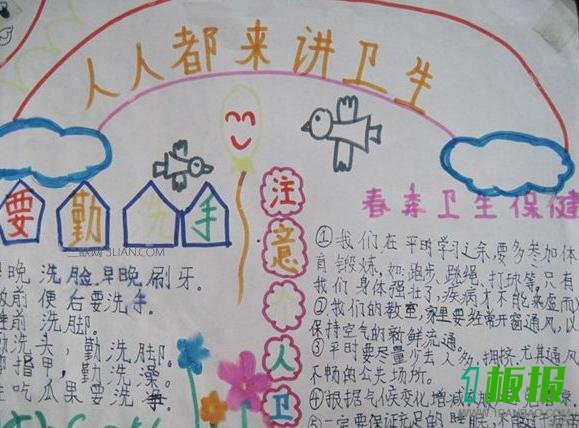 人人都来讲卫生
要勤洗手
晚洗脸,早晚刷牙。
前便后要洗手。
前洗脚。
洗头,勤洗脚。
指甲,勤洗澡。
吃瓜果要洗
注意个人卫
春季卫生保健
①我们在平时学习之余要多参加体
育锻炼,如:跑步,跳绳、打球等,只有
我们身体强壮了,疾病才不能乘虚而
②我们的教室,家里要经常开窗通风,以
保持空气的新鲜流通。
③平时要尽量少去人多,拥挤,尤其通风
不畅的公共场所。
④根据气候变化增减
⑤一定要保证充足的睡眠,不能
1板报
WWW.1BANBAO.COM
3LIAN.COM